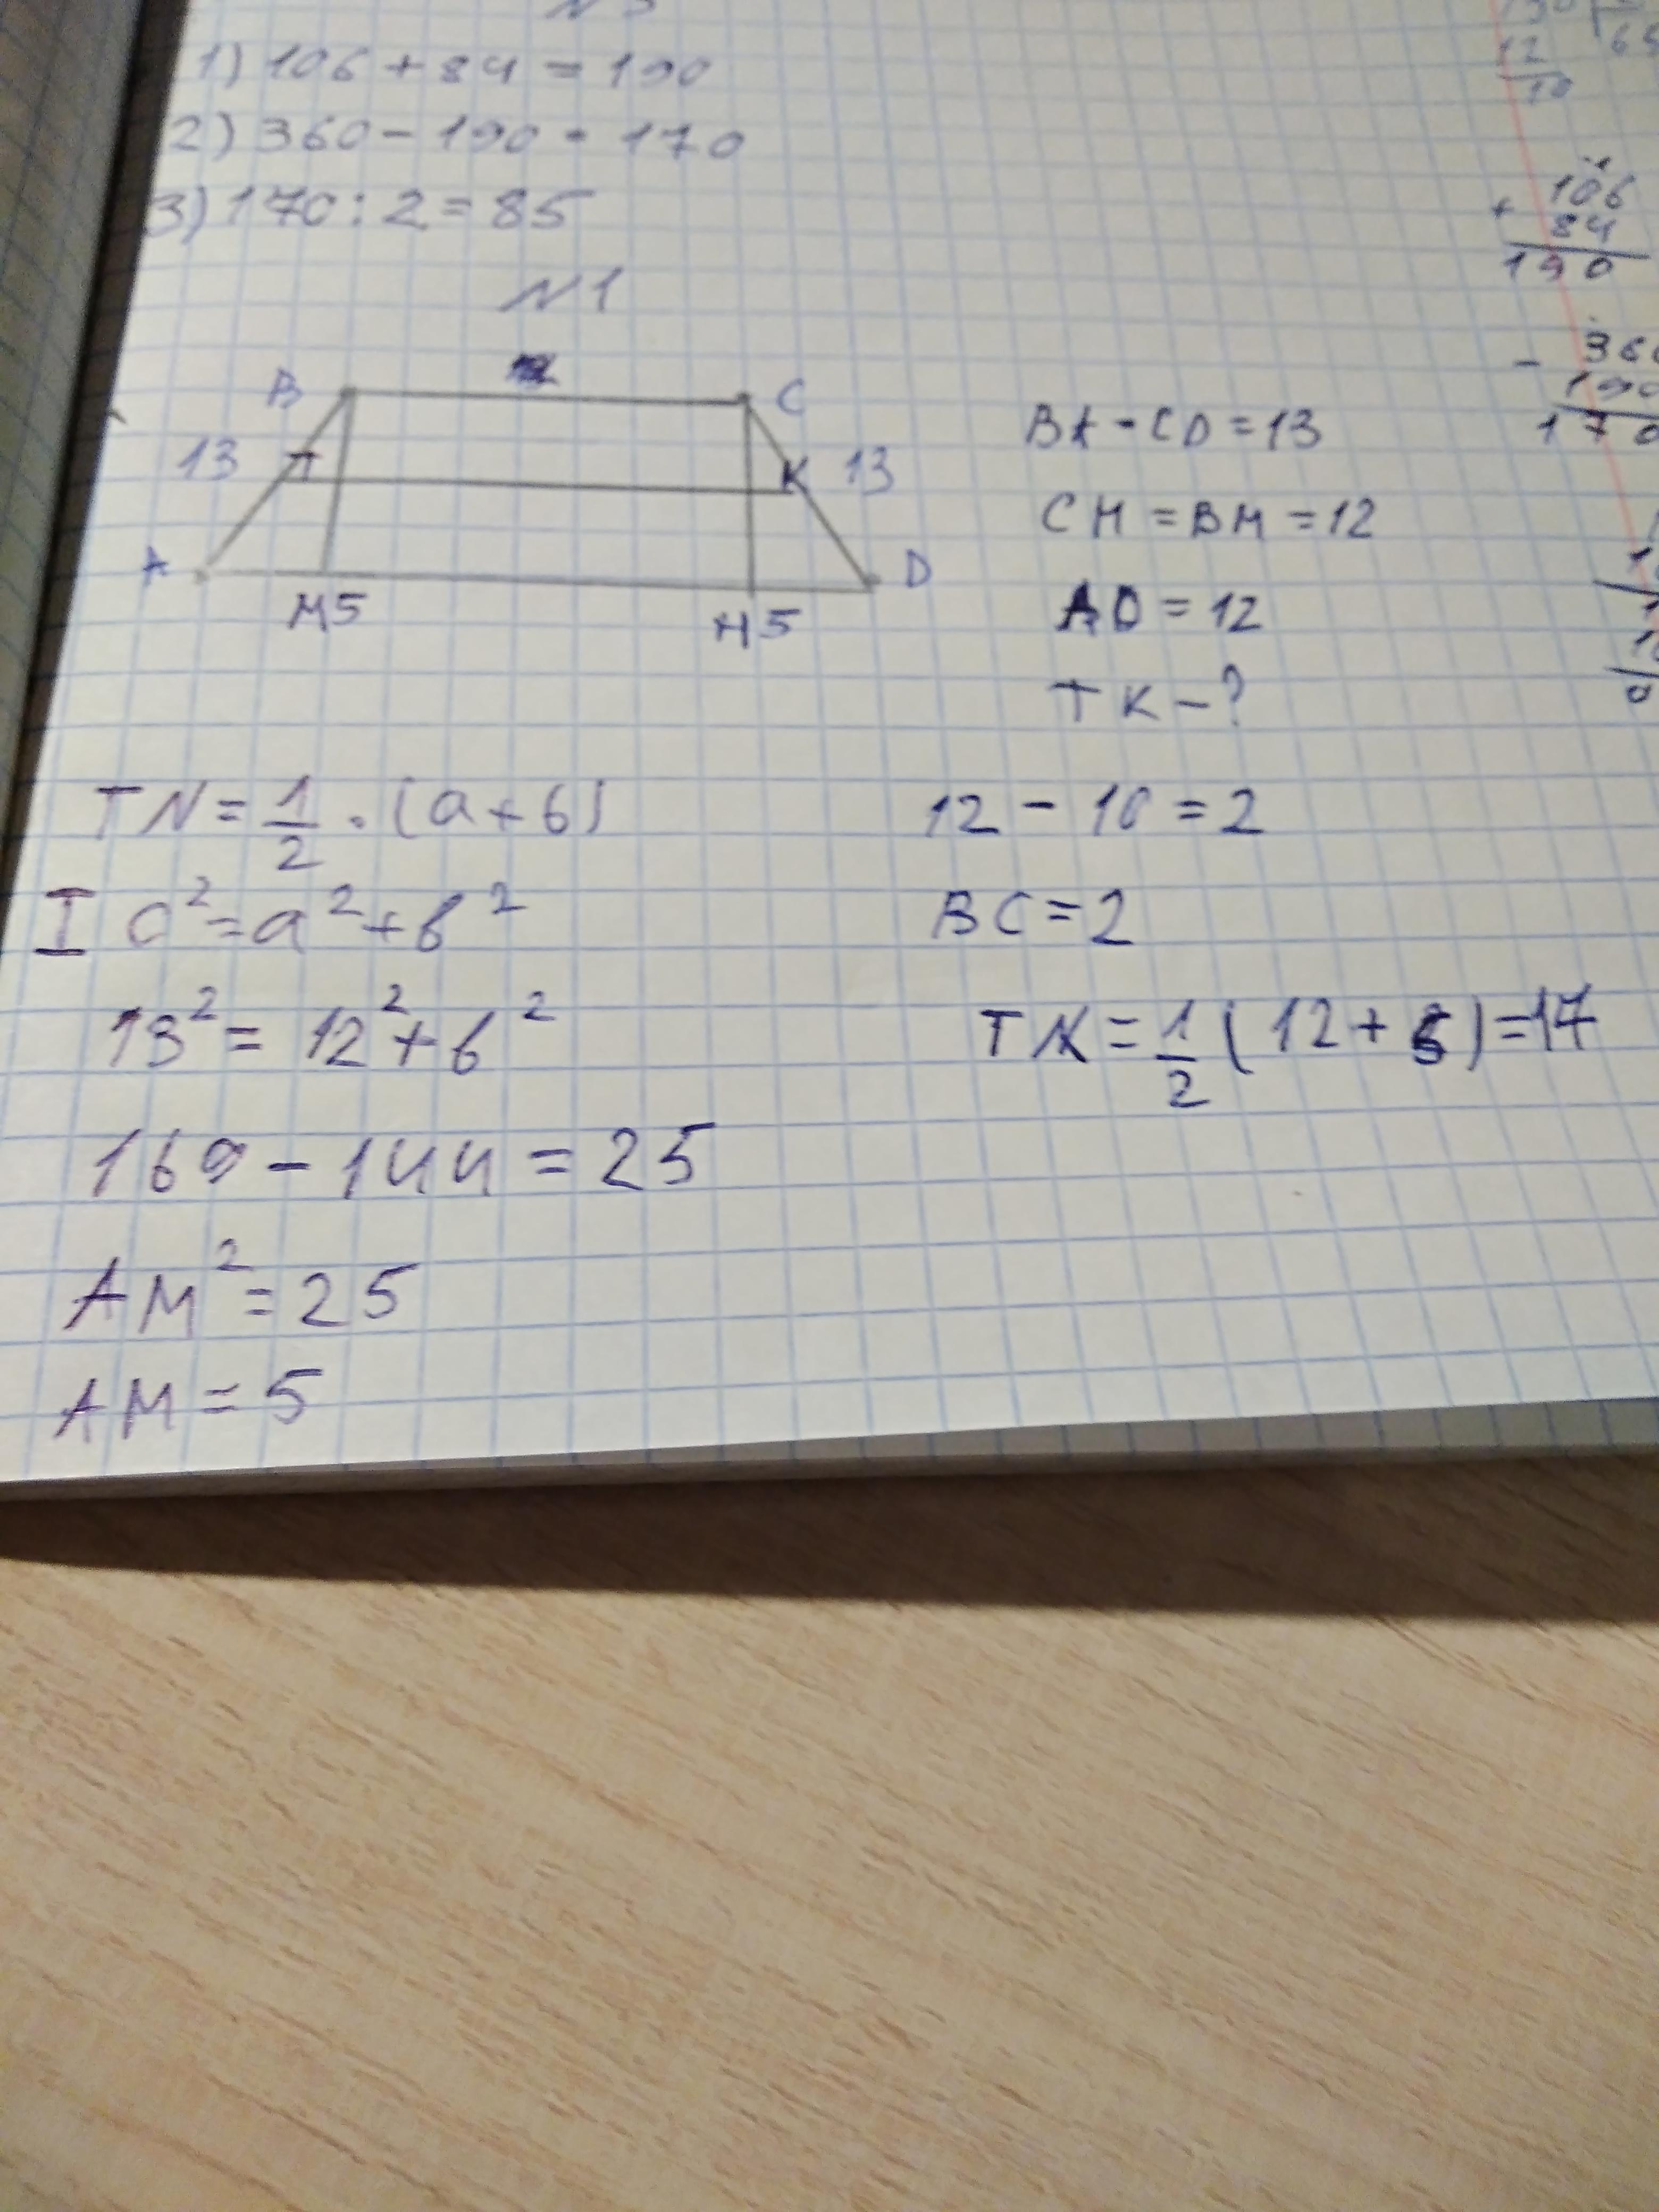 1) 106 + 84 = 190
2) 360 - 190 = 170
3) 170 : 2 = 85
N1
B C
13 T K 13
A D
M5 H5
BA = CD = 13
CH = BM = 12
AD = 12
TK - ?
TN = 1/2 · (a + b)
I c² = a² + b²
13² = 12² + b²
169 - 144 = 25
AM² = 25
AM = 5
12 - 10 = 2
BC = 2
TK = 1/2 (12 + 5) = 17
106
+ 84
190
- 360
190
170